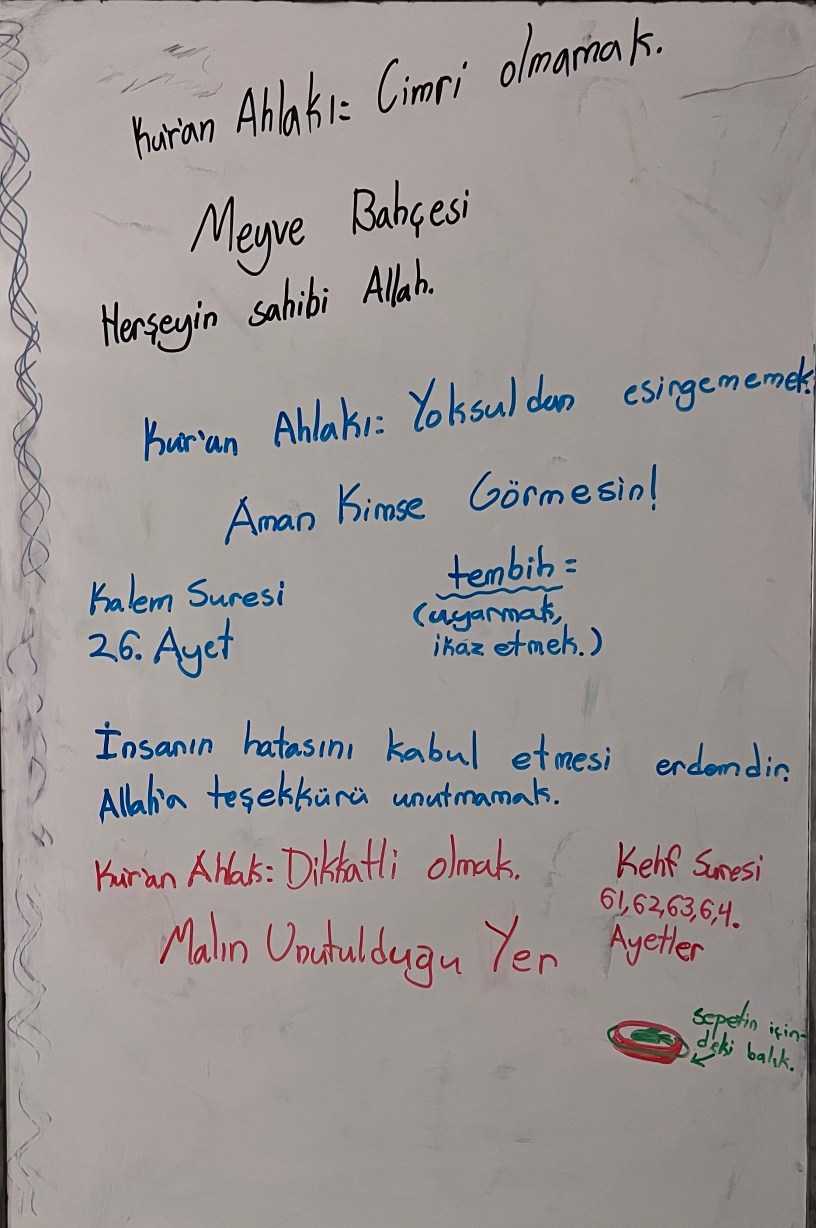 Kur'an Ahlakı: Cimri olmamak.
Meyve Bahçesi
Herşeyin sahibi Allah.
Kur'an Ahlakı: Yoksuldan esirgememek.
Aman Kimse Görmesin!
Kalem Suresi
26. Ayet
tembih =
(uyarmak,
ikaz etmek.)
İnsanın hatasını kabul etmesi erdemdir.
Allah'a teşekkürü unutmamak.
Kur'an Ahlak: Dikkatli olmak.
Kehf Suresi
61,62,63,6,4.
Ayetler
Malın Unutulduğu Yer
sepetin için-
deki balık.